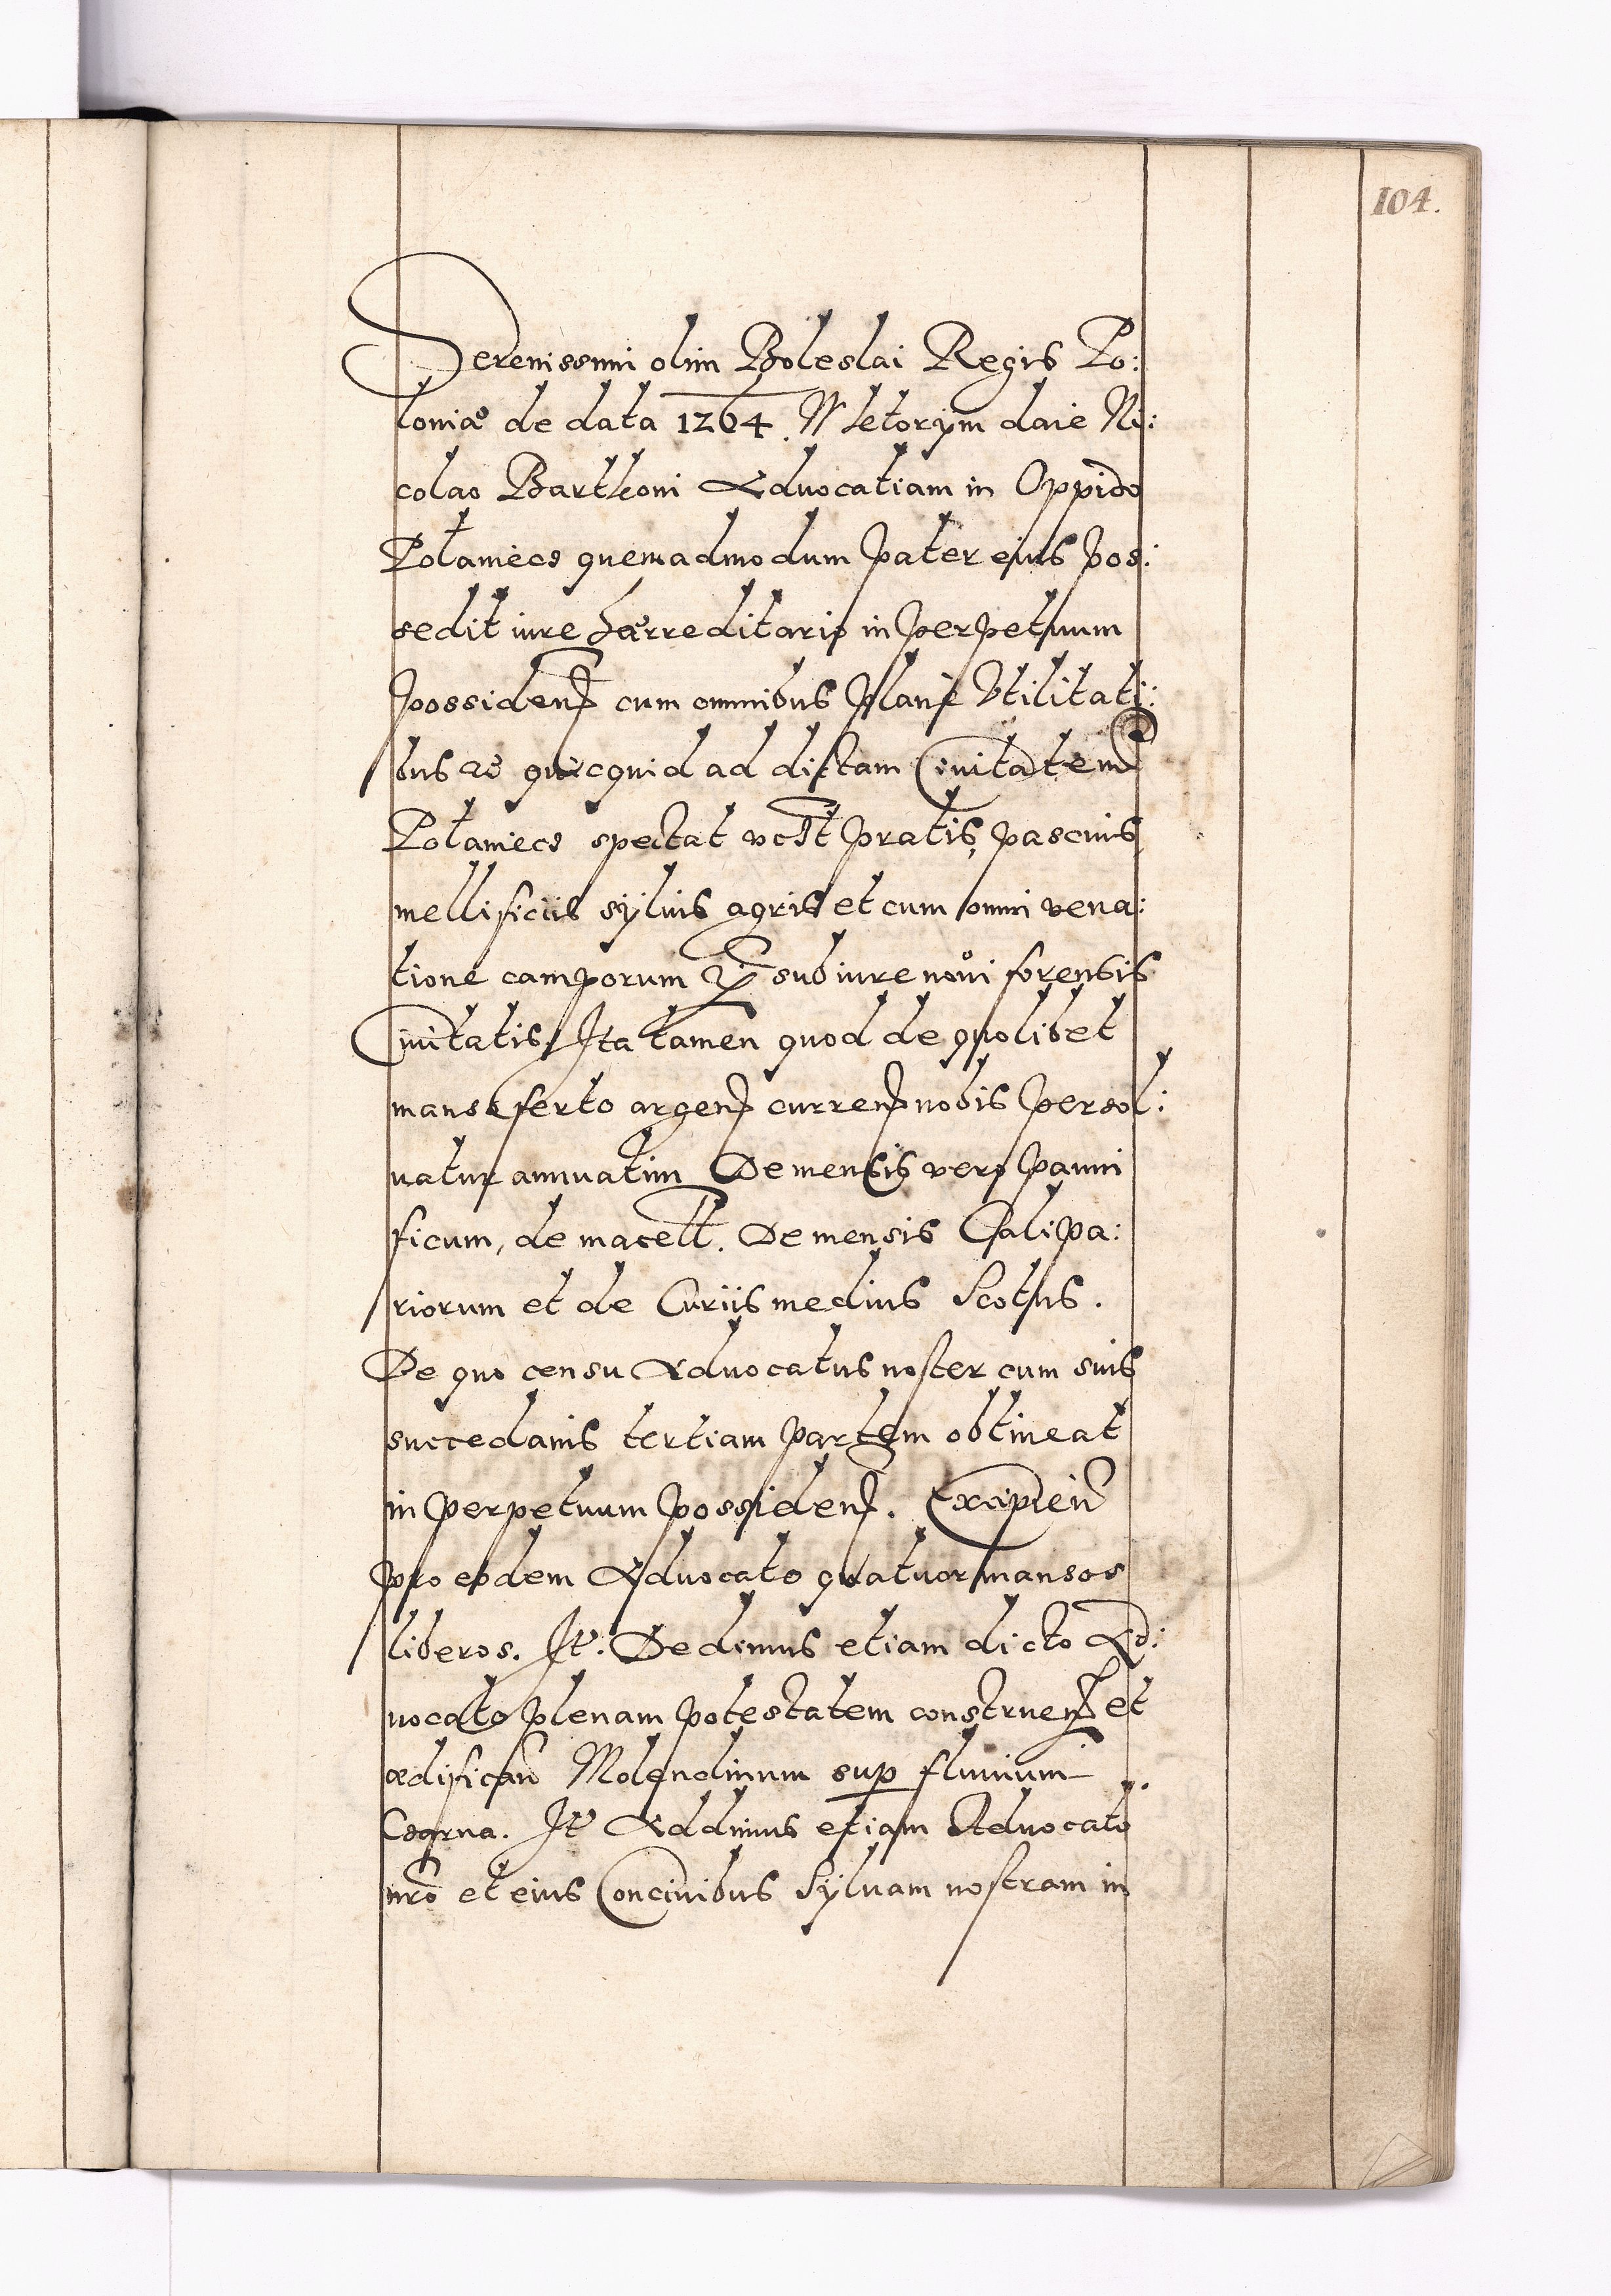 104.
Serenissimi olim Boleslai Regis Po:
loniæ de data 1264. W ktorÿm daie Ni:
colao Bartkoni Advocatiam in Oppido
Połaniecz quemadmodum pater eius pos:
sedit iure hærreditario in perpetuum
possiden cum omnibus plane Vtilitati:
bus ac quicquid ad dictam Civitatem
Połaniecz spectat pratis, pascuis,
mellificiis sÿluis agris et cum omni vena:
tione camporum sub iure noui forensis
Ciuitatis, Ita tamen quod de quolibet
manso ferto argen curren nobis persol:
uatur annuatim De mensis vero panni
ficum, de macell. De mensis Calipa:
riorum et de Curiis medius Scotus.
De quo censu Advocatus noster cum suis
succedanis tertiam partem obtineat
in perpetuum possiden. Excipien
pro eodem Advocato quatuor mansos
liberos. It: Dedimus etiam dicto Ad:
uocato plenam potestatem construen et
ædifican Molendinum sup fluuium
Czarna. It Addimus etiam Advocato
nro et eius Conciuibus Syluam nostram in